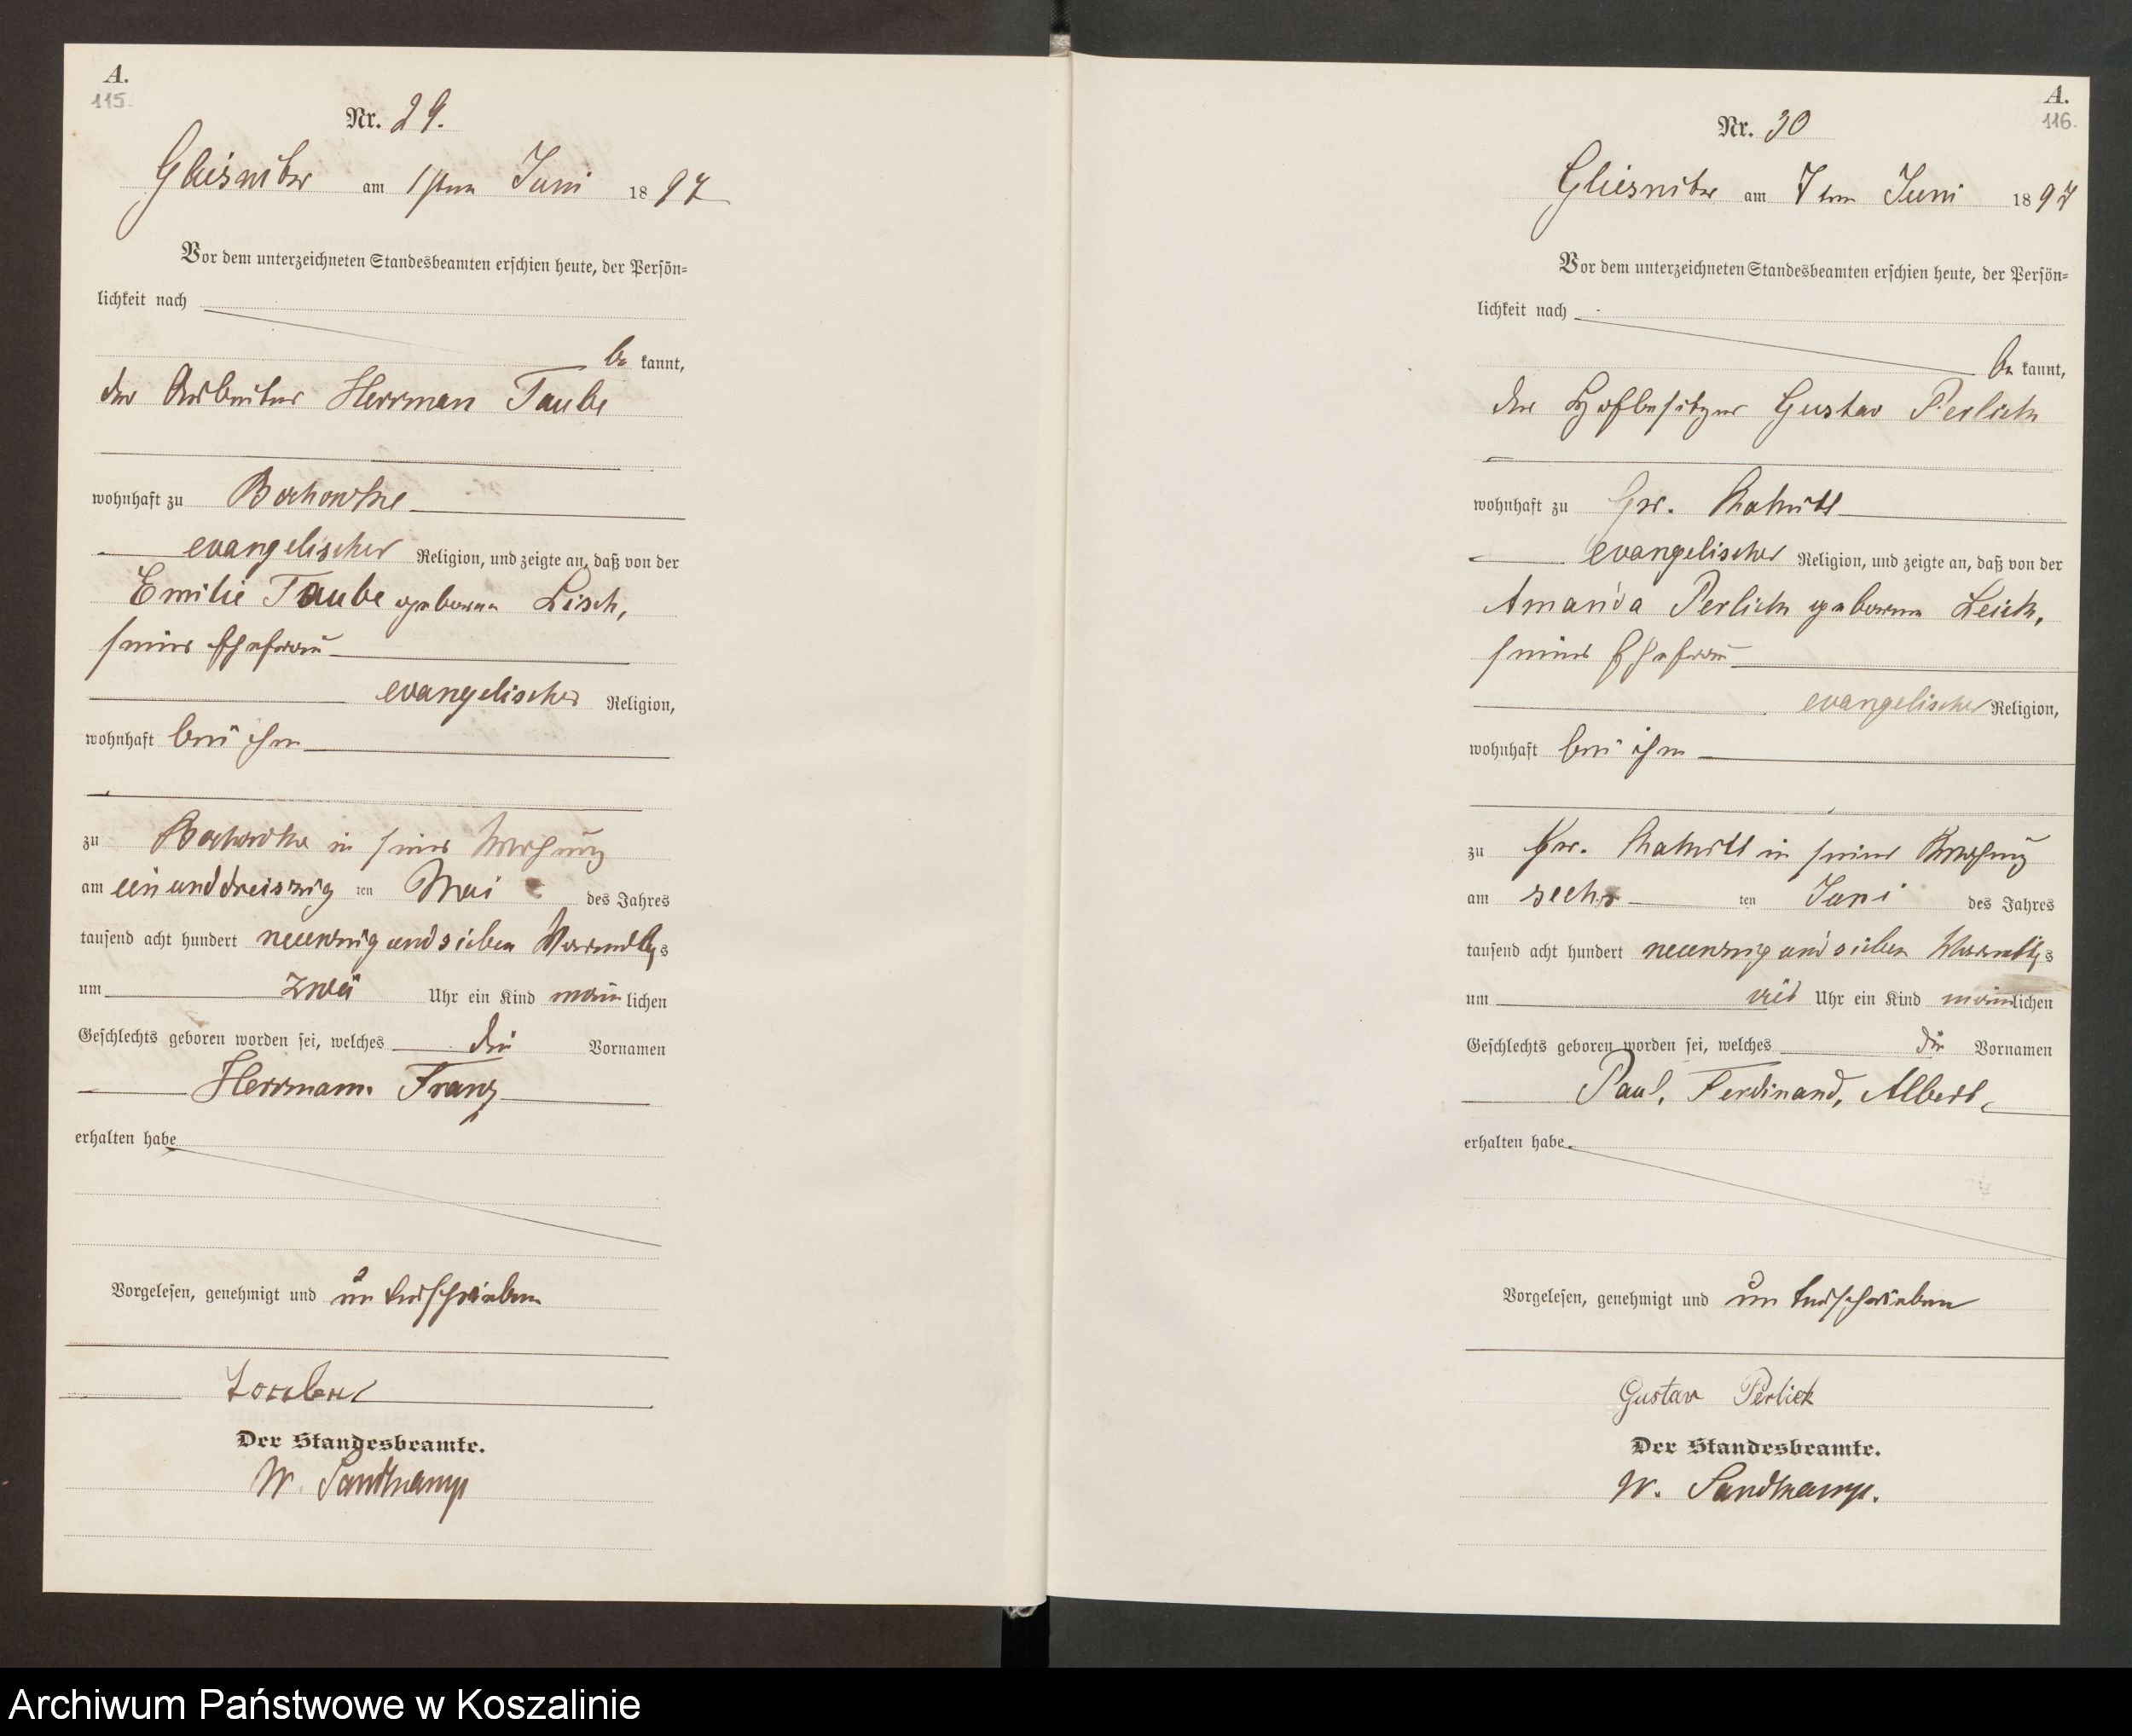 A.
115.
Nr. 29.
Gliesnitz am 1ten Juni 1897
Vor dem unterzeichneten Standesbeamten erschien heute, der Persön=
lichkeit nach
be kannt,
der Arbeiter Herrman Taube
wohnhaft zu Bochowke
evangelischer Religion, und zeigte an, daß von der
Emilie Taube geborene Lisch,
seiner Ehefrau
evangelischer Religion,
wohnhaft bei ihm
zu Bochowke in seiner Wohnung
am einunddreiszig ten Mai des Jahres
tausend acht hundert neunzig und sieben Vormittags
um zwei Uhr ein Kind männlichen
Geschlechts geboren worden sei, welches die Vornamen
Herrmann Franz
erhalten habe
Vorgelesen, genehmigt und unterschrieben
Der Standesbeamte.
W. Sandkamp
A.
116.
Nr. 30
Gliesnitz am 7ten Juni 1897
Vor dem unterzeichneten Standesbeamten erschien heute, der Persön=
lichkeit nach
be kannt,
der Hofbesitzer Gustav Perlick
wohnhaft zu Gr. Rakitt
evangelischer Religion, und zeigte an, daß von der
Amanda Perlick geborene Leick,
seiner Ehefrau
evangelischer Religion,
wohnhaft bei ihm
zu Gr. Rakitt in seiner Wohnung
am sechs ten Juni des Jahres
tausend acht hundert neunzig und sieben Vormittags
um vier Uhr ein Kind männlichen
Geschlechts geboren worden sei, welches die Vornamen
Paul, Ferdinand, Albert,
erhalten habe.
Vorgelesen, genehmigt und unterschrieben
Gustav Perlick
Der Standesbeamte.
W. Sandkamp.
Archiwum Państwowe w Koszalinie